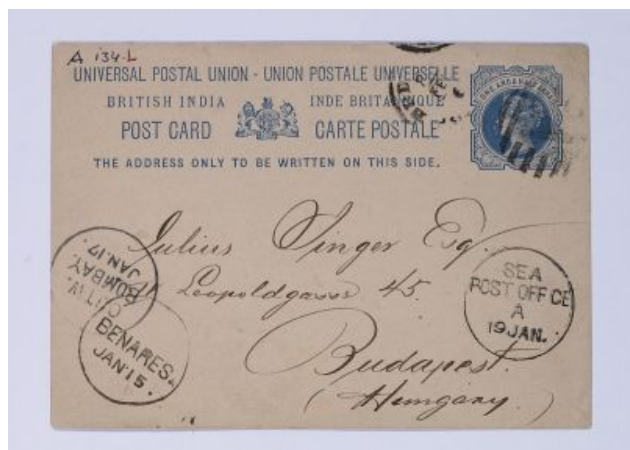 A 134-L
UNIVERSAL POSTAL UNION - UNION POSTALE UNIVERSELLE
BRITISH INDIA INDE BRITANNIQUE
POST CARD CARTE POSTALE
THE ADDRESS ONLY TO BE WRITTEN ON THIS SIDE.
Julius Singer Esq.
Leopoldgasse 45.
Budapest.
(Hungary)
BOMBAY.
JAN.17.
BENARES.
JAN 15.
SEA
POST OFFICE
A
19 JAN.